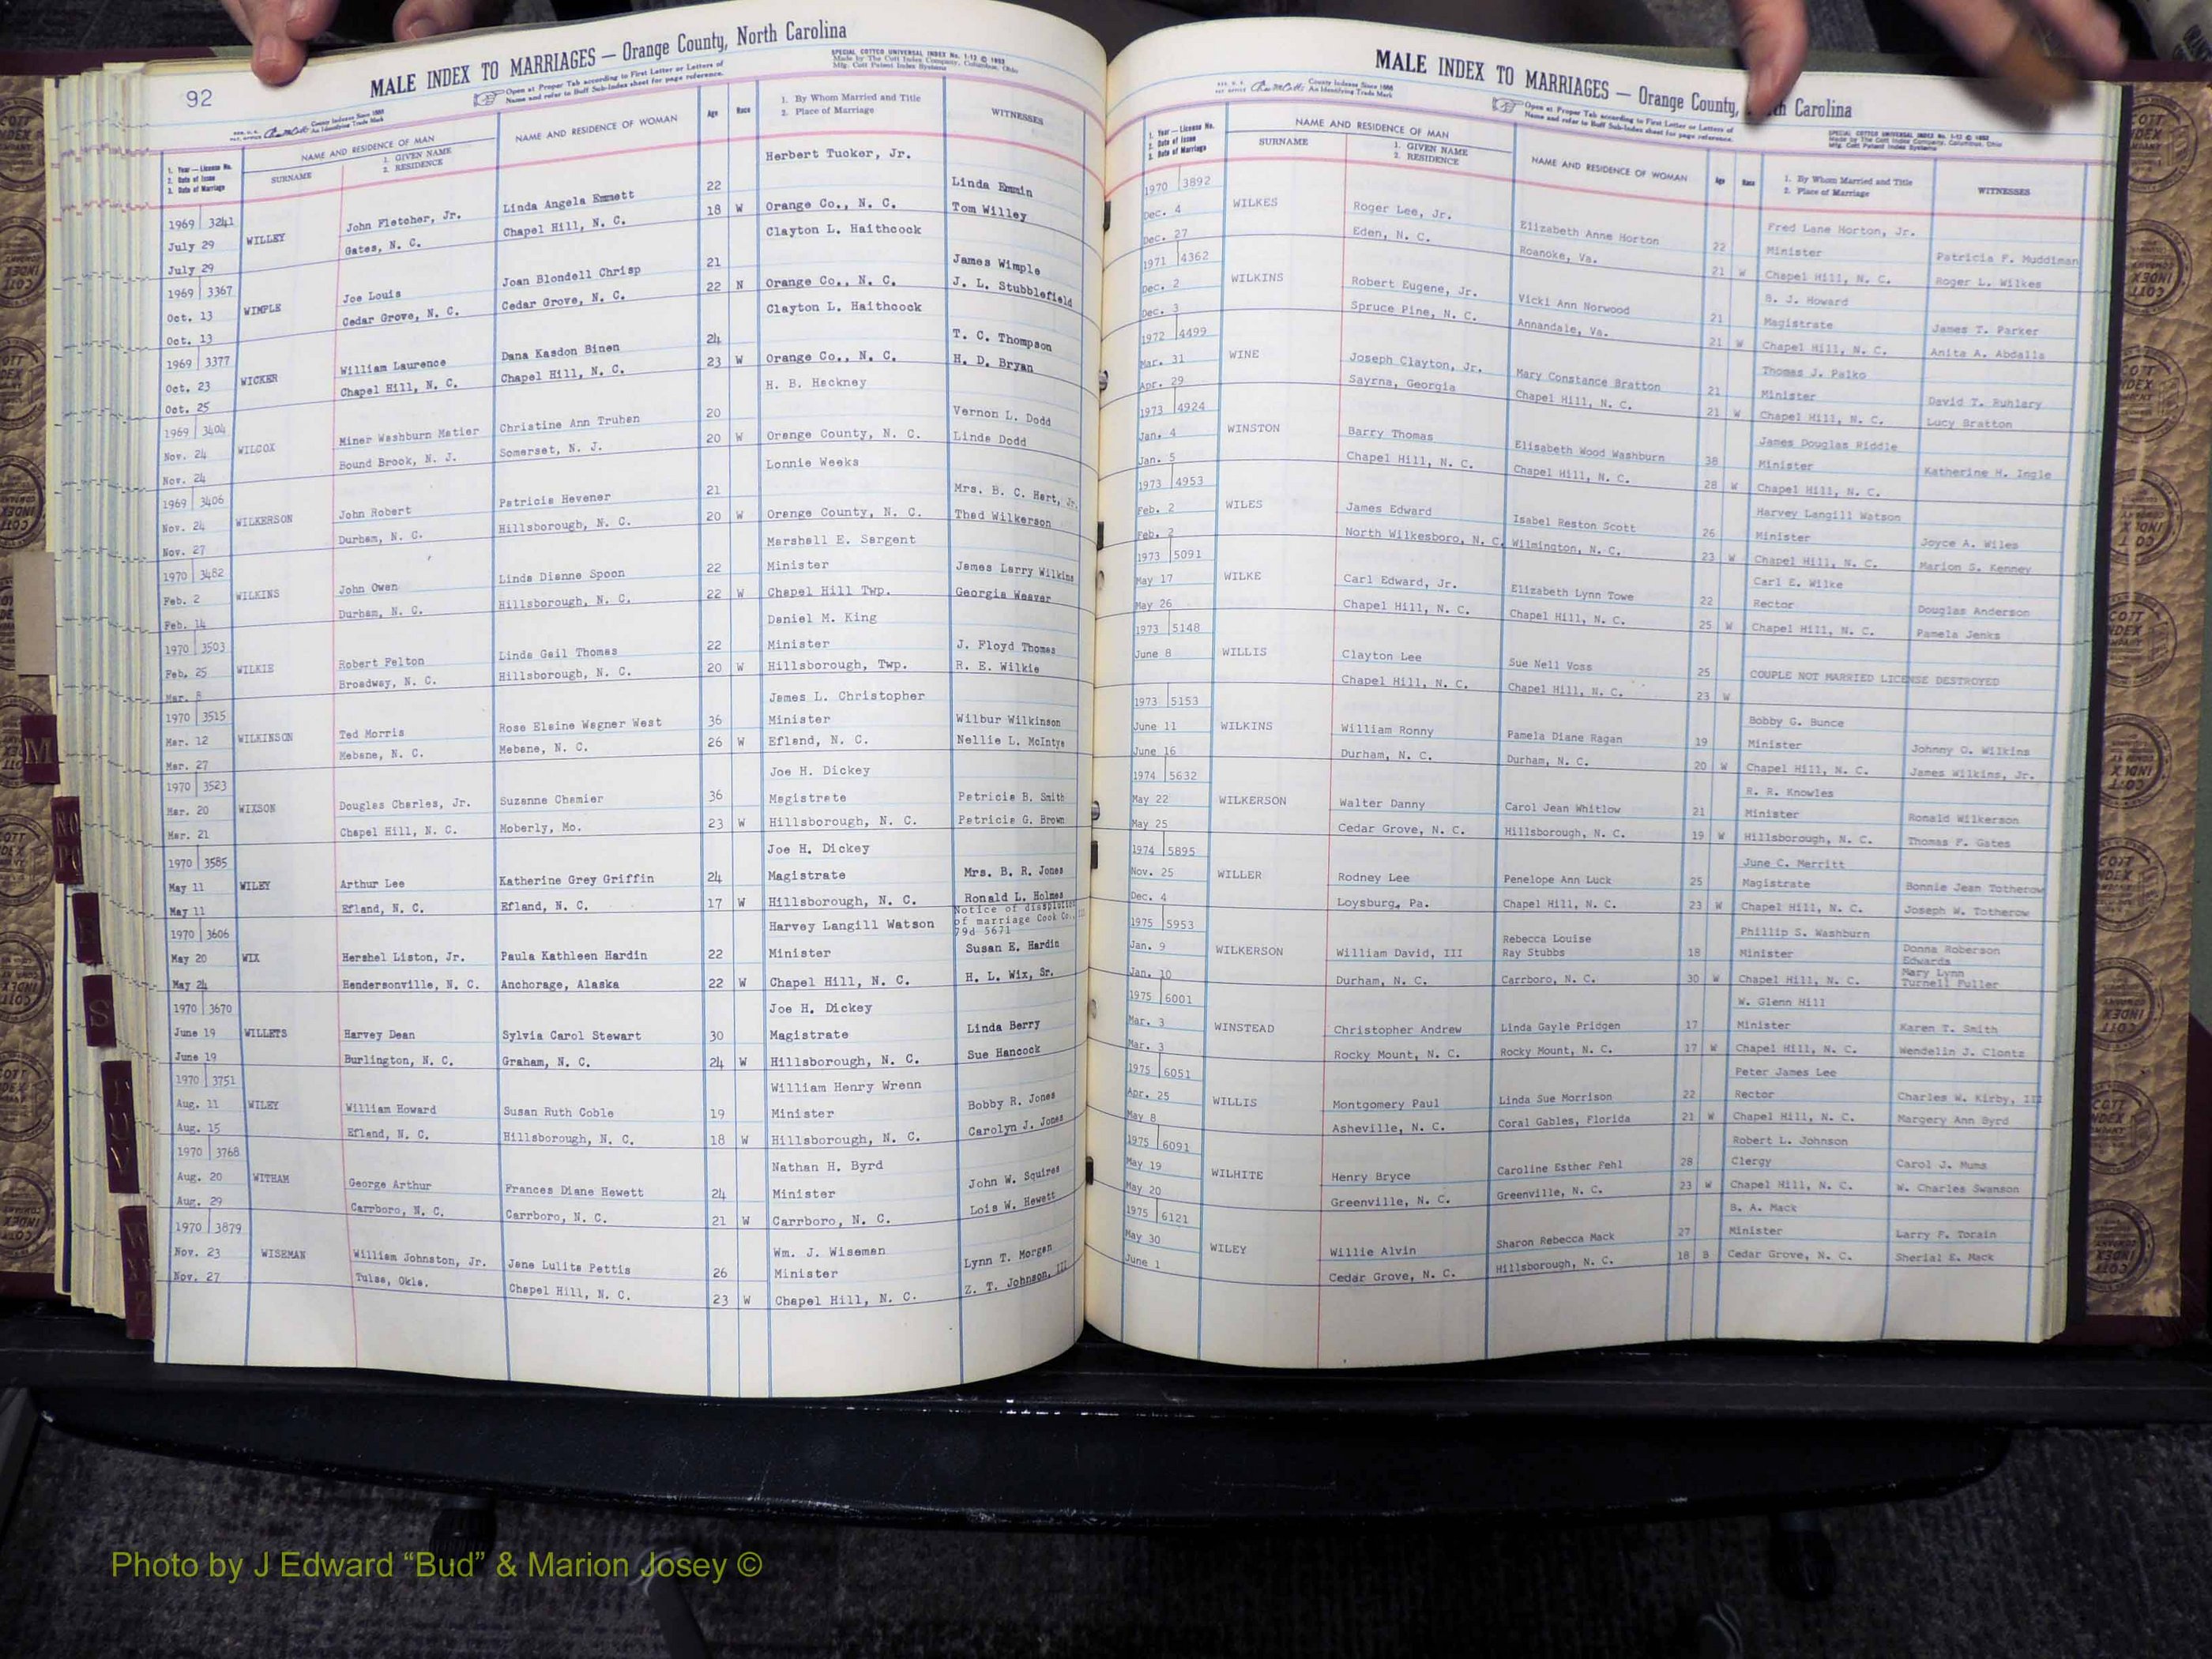 92
MALE INDEX TO MARRIAGES — Orange County, North Carolina
Open at Proper Tab according to First Letter or Letters of
Name and refer to Buff Sub-Index sheet for page reference.
SPECIAL COTTCO UNIVERSAL INDEX No. 1-12 © 1952
Made by The Cott Index Company, Columbus, Ohio
Mfg. Cott Patent Index Systems
County Indexes Since 1888
An Identifying Trade Mark
1. Year — License No.
2. Date of Issue
3. Date of Marriage
NAME AND RESIDENCE OF MAN
SURNAME
1. GIVEN NAME
2. RESIDENCE
NAME AND RESIDENCE OF WOMAN
Age
Race
1. By Whom Married and Title
2. Place of Marriage
WITNESSES
Herbert Tucker, Jr.
1969 3241 John Fletcher, Jr. Linda Angela Emmett 22 Linda Emmin
July 29 WILLEY Gates, N. C. Chapel Hill, N. C. 18 W Orange Co., N. C. Tom Willey
July 29 Clayton L. Haithcock
1969 3367 Joe Louis Joan Blondell Chrisp 21 James Wimple
Oct. 13 WIMPLE Cedar Grove, N. C. Cedar Grove, N. C. 22 N Orange Co., N. C. J. L. Stubblefield
Oct. 13 Clayton L. Haithcock
1969 3377 William Laurence Dana Kasdon Binen 24 T. C. Thompson
Oct. 23 WICKER Chapel Hill, N. C. Chapel Hill, N. C. 23 W Orange Co., N. C. H. D. Bryan
Oct. 25 H. B. Hackney
1969 3404 Miner Washburn Matier Christine Ann Truhen 20 Vernon L. Dodd
Nov. 24 WILCOX Bound Brook, N. J. Somerset, N. J. 20 W Orange County, N. C. Linda Dodd
Nov. 24 Lonnie Weeks
1969 3406 John Robert Patricia Hevener 21 Mrs. B. C. Hart, Jr.
Nov. 24 WILKERSON Durham, N. C. Hillsborough, N. C. 20 W Orange County, N. C. Thed Wilkerson
Nov. 27 Marshall E. Sargent
1970 3482 John Owen Linda Dianne Spoon 22 Minister James Larry Wilkins
Feb. 2 WILKINS Durham, N. C. Hillsborough, N. C. 22 W Chapel Hill Twp. Georgia Weaver
Feb. 14 Daniel M. King
1970 3503 Robert Felton Linda Gail Thomas 22 Minister J. Floyd Thomas
Feb. 25 WILKIE Broadway, N. C. Hillsborough, N. C. 20 W Hillsborough, Twp. R. E. Wilkie
Mar. 8 James L. Christopher
1970 3515 Ted Morris Rose Elaine Wagner West 36 Minister Wilbur Wilkinson
Mar. 12 WILKINSON Mebane, N. C. Mebane, N. C. 26 W Efland, N. C. Nellie L. McIntye
Mar. 27 Joe H. Dickey
1970 3523 Douglas Charles, Jr. Suzanne Chamier 36 Magistrate Patricia B. Smith
Mar. 20 WIXSON Chapel Hill, N. C. Moberly, Mo. 23 W Hillsborough, N. C. Patricia G. Brown
Mar. 21 Joe H. Dickey
1970 3585 Arthur Lee Katherine Grey Griffin 24 Magistrate Mrs. B. R. Jones
May 11 WILEY Efland, N. C. Efland, N. C. 17 W Hillsborough, N. C. Ronald L. Holmes
May 11 Harvey Langill Watson Notice of dissolution
of marriage Cook Co.,
79d 5671
1970 3606 Hershel Liston, Jr. Paula Kathleen Hardin 22 Minister Susan E. Hardin
May 20 WIX Hendersonville, N. C. Anchorage, Alaska 22 W Chapel Hill, N. C. H. L. Wix, Sr.
May 24 Joe H. Dickey
1970 3670 Harvey Dean Sylvia Carol Stewart 30 Magistrate Linda Berry
June 19 WILLETS Burlington, N. C. Graham, N. C. 24 W Hillsborough, N. C. Sue Hancock
June 19 William Henry Wrenn
1970 3751 William Howard Susan Ruth Coble 19 Minister Bobby R. Jones
Aug. 11 WILEY Efland, N. C. Hillsborough, N. C. 18 W Hillsborough, N. C. Carolyn J. Jones
Aug. 15 Nathan H. Byrd
1970 3768 George Arthur Frances Diane Hewett 24 Minister John W. Squires
Aug. 20 WITHAM Carrboro, N. C. Carrboro, N. C. 21 W Carrboro, N. C. Lois W. Hewett
Aug. 29 Wm. J. Wiseman
1970 3879 William Johnston, Jr. Jane Lulita Pettis 26 Minister Lynn T. Morgan
Nov. 23 WISEMAN Tulsa, Okla. Chapel Hill, N. C. 23 W Chapel Hill, N. C. Z. T. Johnson, III
Nov. 27
MALE INDEX TO MARRIAGES — Orange County, th Carolina
County Indexes Since 1888
An Identifying Trade Mark
Open at Proper Tab according to First Letter or Letters of
Name and refer to Buff Sub-Index sheet for page reference.
SPECIAL COTTCO UNIVERSAL INDEX No. 1-12 © 1952
Made by The Cott Index Company, Columbus, Ohio
Mfg. Cott Patent Index Systems
1. Year — License No.
2. Date of Issue
3. Date of Marriage
NAME AND RESIDENCE OF MAN
SURNAME
1. GIVEN NAME
2. RESIDENCE
NAME AND RESIDENCE OF WOMAN
Age
Race
1. By Whom Married and Title
2. Place of Marriage
WITNESSES
1970 3892 Fred Lane Horton, Jr.
Dec. 4 WILKES Roger Lee, Jr. Elizabeth Anne Horton 22 Minister Patricia F. Muddiman
Dec. 27 Eden, N. C. Roanoke, Va. 21 W Chapel Hill, N. C. Roger L. Wilkes
1971 4362 B. J. Howard
Dec. 2 WILKINS Robert Eugene, Jr. Vicki Ann Norwood 21 Magistrate James T. Parker
Dec. 3 Spruce Pine, N. C. Annandale, Va. 21 W Chapel Hill, N. C. Anita A. Abdalla
1972 4499 Thomas J. Palko
Mar. 31 WINE Joseph Clayton, Jr. Mary Constance Bratton 21 Minister David T. Ruhlary
Apr. 29 Sayrna, Georgia Chapel Hill, N. C. 21 W Chapel Hill, N. C. Lucy Bratton
1973 4924 James Douglas Riddle
Jan. 4 WINSTON Barry Thomas Elisabeth Wood Washburn 38 Minister Katherine H. Ingle
Jan. 5 Chapel Hill, N. C. Chapel Hill, N. C. 28 W Chapel Hill, N. C.
1973 4953 Harvey Langill Watson
Feb. 2 WILES James Edward Isabel Reston Scott 26 Minister Joyce A. Wiles
Feb. 2 North Wilkesboro, N. C. Wilmington, N. C. 23 W Chapel Hill, N. C. Marion S. Kenney
1973 5091 Carl E. Wilke
May 17 WILKE Carl Edward, Jr. Elizabeth Lynn Towe 22 Rector Douglas Anderson
May 26 Chapel Hill, N. C. Chapel Hill, N. C. 25 W Chapel Hill, N. C. Pamela Jenks
1973 5148
June 8 WILLIS Clayton Lee Sue Nell Voss 25 COUPLE NOT MARRIED LICENSE DESTROYED
Chapel Hill, N. C. Chapel Hill, N. C. 23 W
1973 5153 Bobby G. Bunce
June 11 WILKINS William Ronny Pamela Diane Ragan 19 Minister Johnny O. Wilkins
June 16 Durham, N. C. Durham, N. C. 20 W Chapel Hill, N. C. James Wilkins, Jr.
1974 5632 R. R. Knowles
May 22 WILKERSON Walter Danny Carol Jean Whitlow 21 Minister Ronald Wilkerson
May 25 Cedar Grove, N. C. Hillsborough, N. C. 19 W Hillsborough, N. C. Thomas F. Gates
1974 5895 June C. Merritt
Nov. 25 WILLER Rodney Lee Penelope Ann Luck 25 Magistrate Bonnie Jean Totherow
Dec. 4 Loysburg, Pa. Chapel Hill, N. C. 23 W Chapel Hill, N. C. Joseph W. Totherow
1975 5953 Rebecca Louise Phillip S. Washburn
Jan. 9 WILKERSON William David, III Ray Stubbs 18 Minister Donna Roberson
Edwards
Jan. 10 Durham, N. C. Carrboro, N. C. 30 W Chapel Hill, N. C. Mary Lynn
Turnell Fuller
1975 6001 W. Glenn Hill
Mar. 3 WINSTEAD Christopher Andrew Linda Gayle Pridgen 17 Minister Karen T. Smith
Mar. 3 Rocky Mount, N. C. Rocky Mount, N. C. 17 W Chapel Hill, N. C. Wendelin J. Clontz
1975 6051 Peter James Lee
Apr. 25 WILLIS Montgomery Paul Linda Sue Morrison 22 Rector Charles W. Kirby, III
May 8 Asheville, N. C. Coral Gables, Florida 21 W Chapel Hill, N. C. Margery Ann Byrd
1975 6091 Robert L. Johnson
May 19 WILHITE Henry Bryce Caroline Esther Fehl 28 Clergy Carol J. Mums
May 20 Greenville, N. C. Greenville, N. C. 23 W Chapel Hill, N. C. W. Charles Swanson
1975 6121 B. A. Mack
May 30 WILEY Willie Alvin Sharon Rebecca Mack 27 Minister Larry F. Torain
June 1 Cedar Grove, N. C. Hillsborough, N. C. 18 B Cedar Grove, N. C. Sherial E. Mack
M
S
Photo by J Edward “Bud” & Marion Josey ©